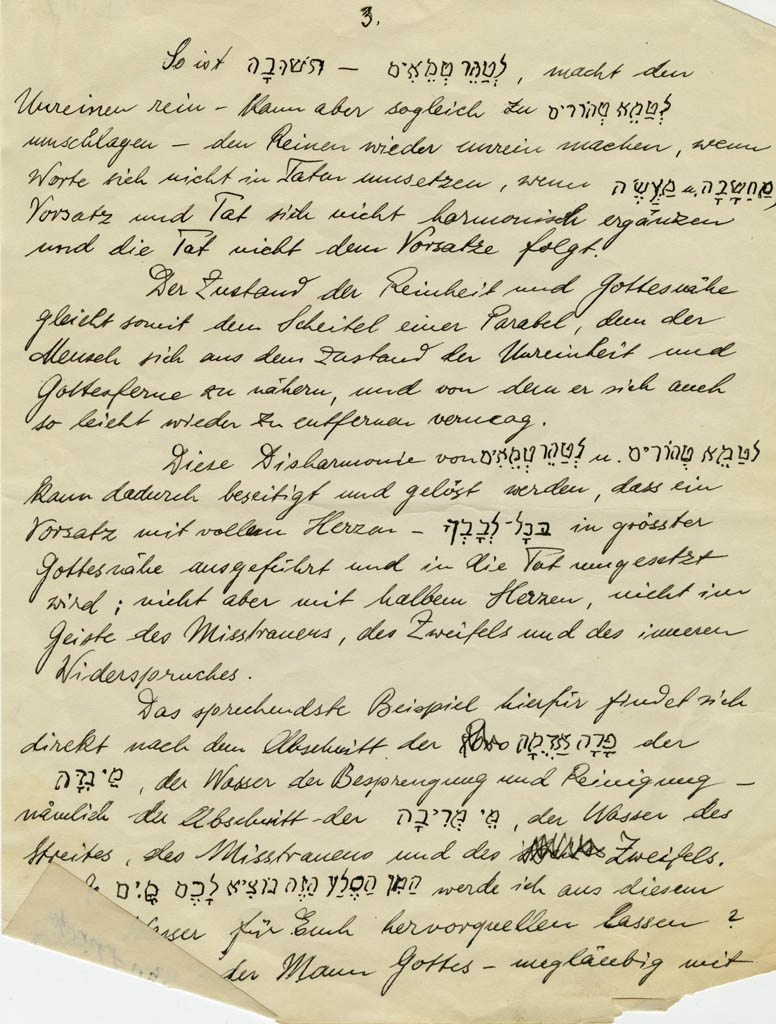 3.
So ist תשובה – לְטַהֵר טְמֵאִים, macht den
Unreinen rein – kann aber sogleich zu לְטַמֵּא טְהוֹרִים
umschlagen – den Reinen wieder unrein machen, wenn
Worte sich nicht in Taten umsetzen, wenn מַחְשָׁבָה u. מַעֲשֶׂה,
Vorsatz und Tat sich nicht harmonisch ergänzen
und die Tat nicht dem Vorsatze folgt.
Der Zustand der Reinheit und Gottesnähe
gleicht somit dem Scheitel einer Parabel, dem der
Mensch sich aus dem Zustand der Unreinheit und
Gottesferne zu nähern, und von dem er sich auch
so leicht wieder zu entfernen vermag.
Diese Disharmonie von לְטַהֵר טְמֵאִים u. לְטַמֵּא טְהוֹרִים
kann dadurch beseitigt und gelöst werden, dass ein
Vorsatz mit vollem Herzen – בְּכָל-לְבָבְךָ in grösster
Gottesnähe ausgeführt und in die Tat umgesetzt
wird; nicht aber mit halbem Herzen, nicht im
Geiste des Misstrauens, des Zweifels und des inneren
Widerspruches.
Das sprechendste Beispiel hierfür findet sich
direkt nach dem Abschnitt der פָּרָה אֲדֻמָּה der
מֵי נִדָּה, der Wasser der Besprengung und Reinigung –
nämlich der Abschnitt der מֵי מְרִיבָה, der Wasser des
Streites, des Misstrauens und des Zweifels.
הֲמִן הַסֶּלַע הַזֶּה נוֹצִיא לָכֶם מָיִם werde ich aus diesem
für Euch hervorquellen lassen?
der Mann Gottes – ungläubig mit